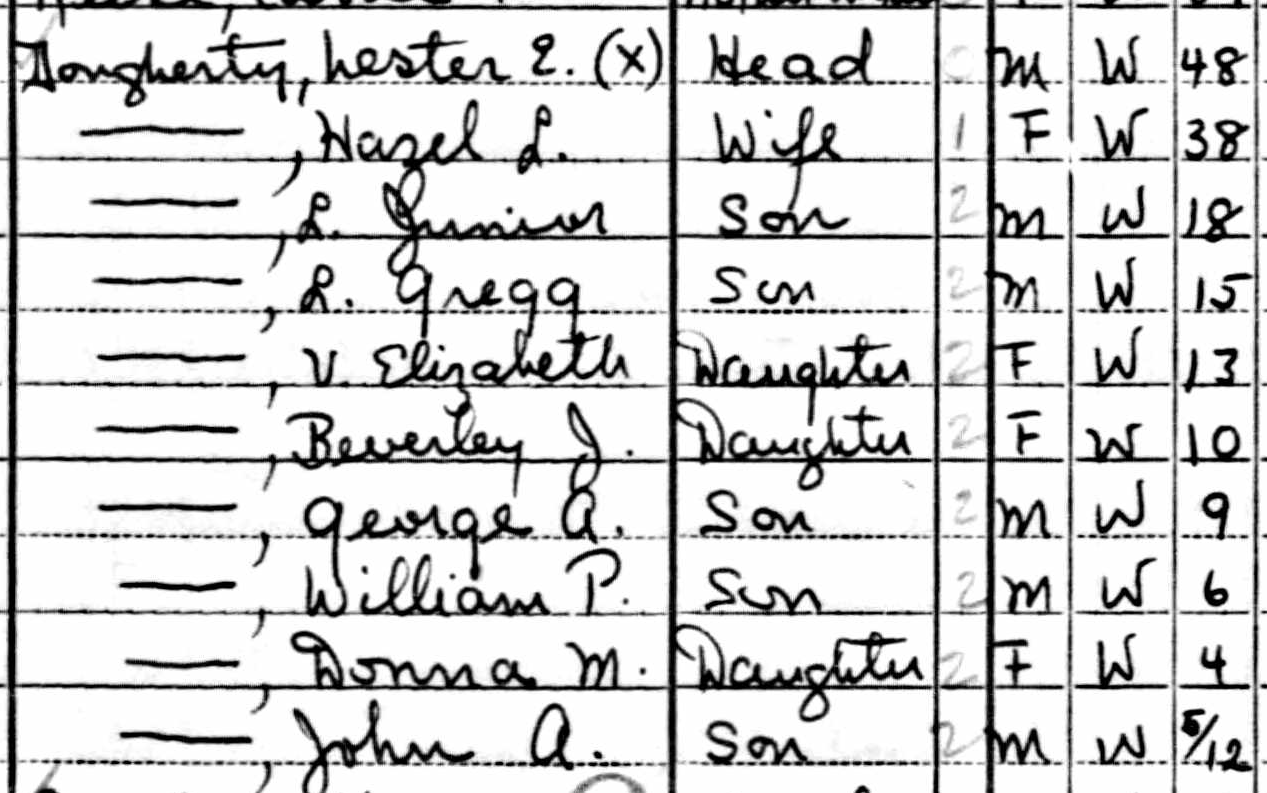 Dougherty, Lester E. (X) Head 0 M W 48
——, Hazel L. Wife 1 F W 38
——, L. Junior Son 2 M W 18
——, L. Gregg Son 2 M W 15
——, V. Elizabeth Daughter 2 F W 13
——, Beverley J. Daughter 2 F W 10
——, George A. Son 2 M W 9
——, William P. Son 2 M W 6
——, Donna M. Daughter 2 F W 4
——, John A. Son 2 M W 5/12